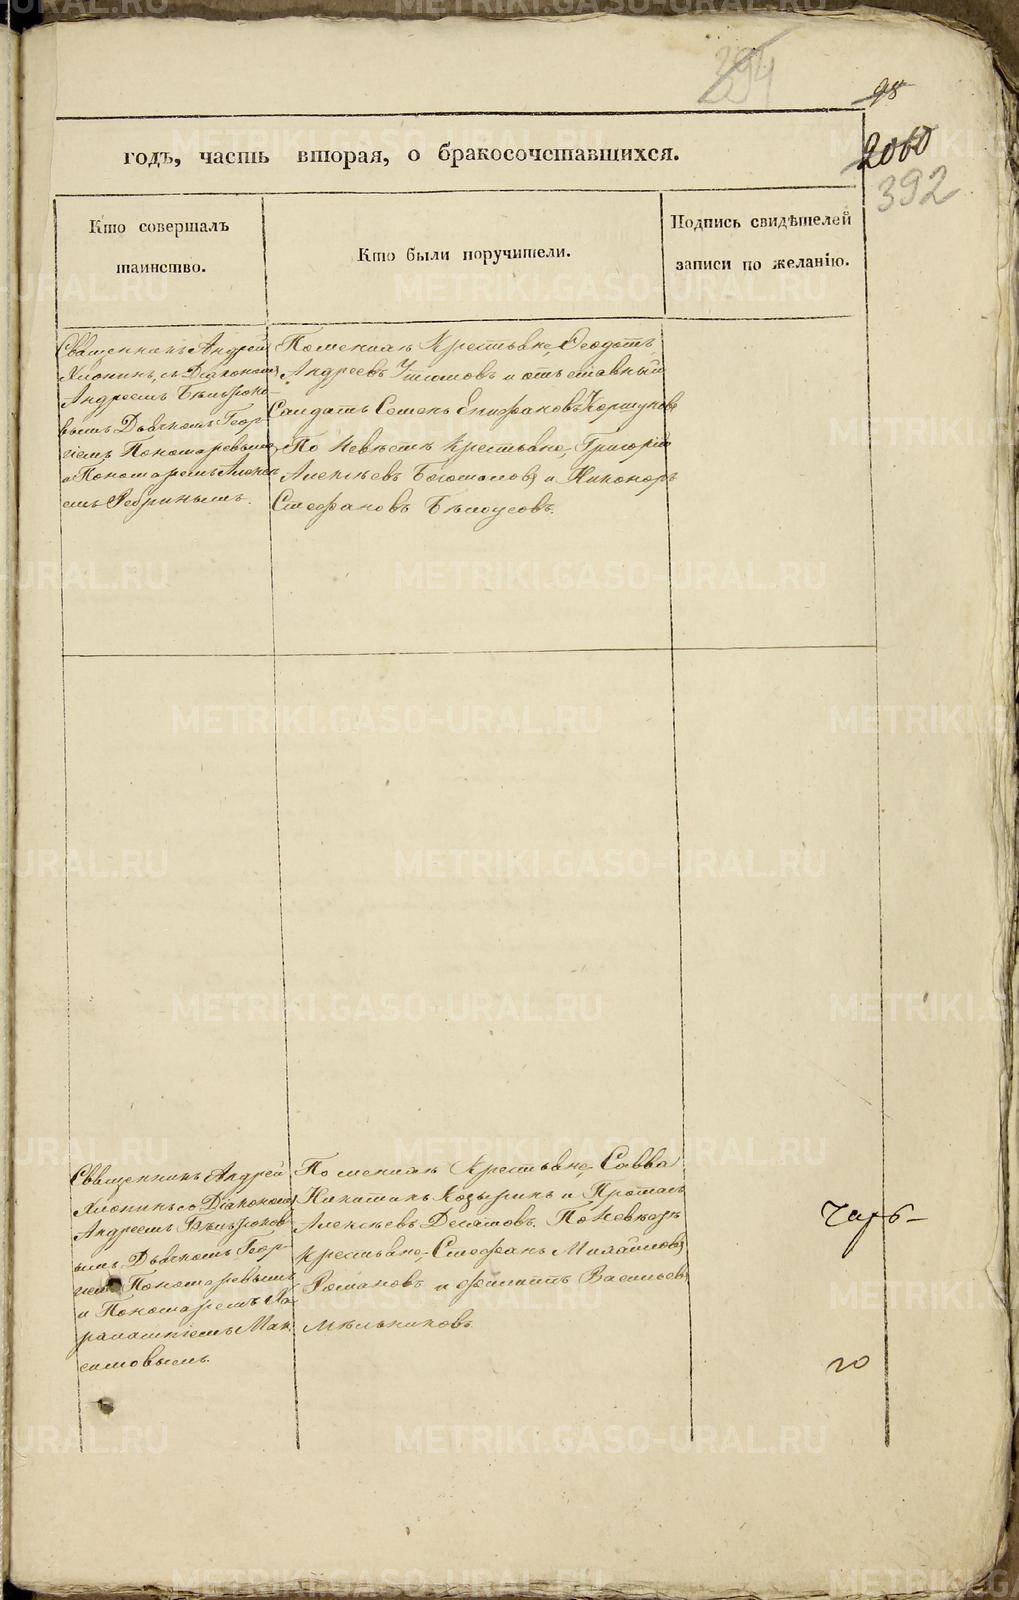 394
98
2060
392
годъ, часть вторая, о бракосочетавшихся.
Кто совершалъ
таинство.
Кто были поручители.
Подпись свидѣтелей
записи по желанію.
Священникъ Андрей
Хлопинъ, съ Діакономъ
Андреемъ
вымъ Дьячкомъ Геор-
гіемъ Пономаревымъ
и Пономаремъ Алексѣ
емъ Ребринымъ.
По женихѣ Крестьяне, Ѳеодотъ
Андреевъ и отставный
Солдатъ Семенъ Епифановъ Коршуновъ
По Невѣстѣ крестьяне, Григорій
Алексѣевъ Богомоловъ и Никоноръ
Стефановъ Бѣлоусовъ.
Священникъ Андрей
Хлопинъ со Діакономъ
Андреемъ
ымъ Дьячкомъ Геор-
гіемъ Пономаревымъ
и Пономаремъ Ха-
рлампіемъ Мак-
симовымъ.
По женихѣ Крестьяне, Савва
Козыринъ и
Алексѣевъ Десятовъ. По Невѣстѣ
крестьяне, Стефанъ Михайловъ
Романовъ и Филиппъ Васильевъ
Мѣльниковъ.
го
METRIKI.GASO-URAL.RU